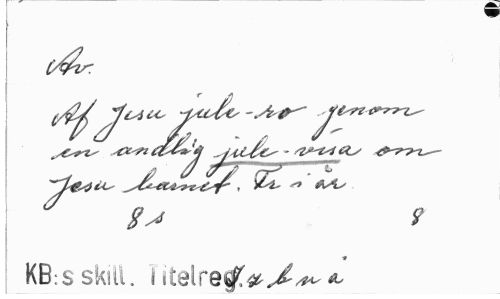 Av.
Af Jesu jule-ro genom
en andlig jule-visa om
Jesu barnet. Tr i år.
8 s 8
KB:s skill. Titelreg. I z b n å